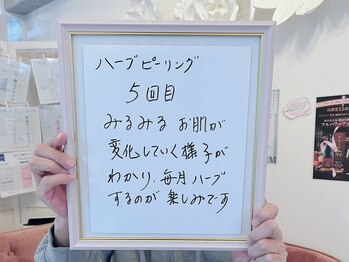 ハーブピーリング
5回目
みるみる お肌が
変化していく様子が
わかり、毎月ハーブ
するのが 楽しみです